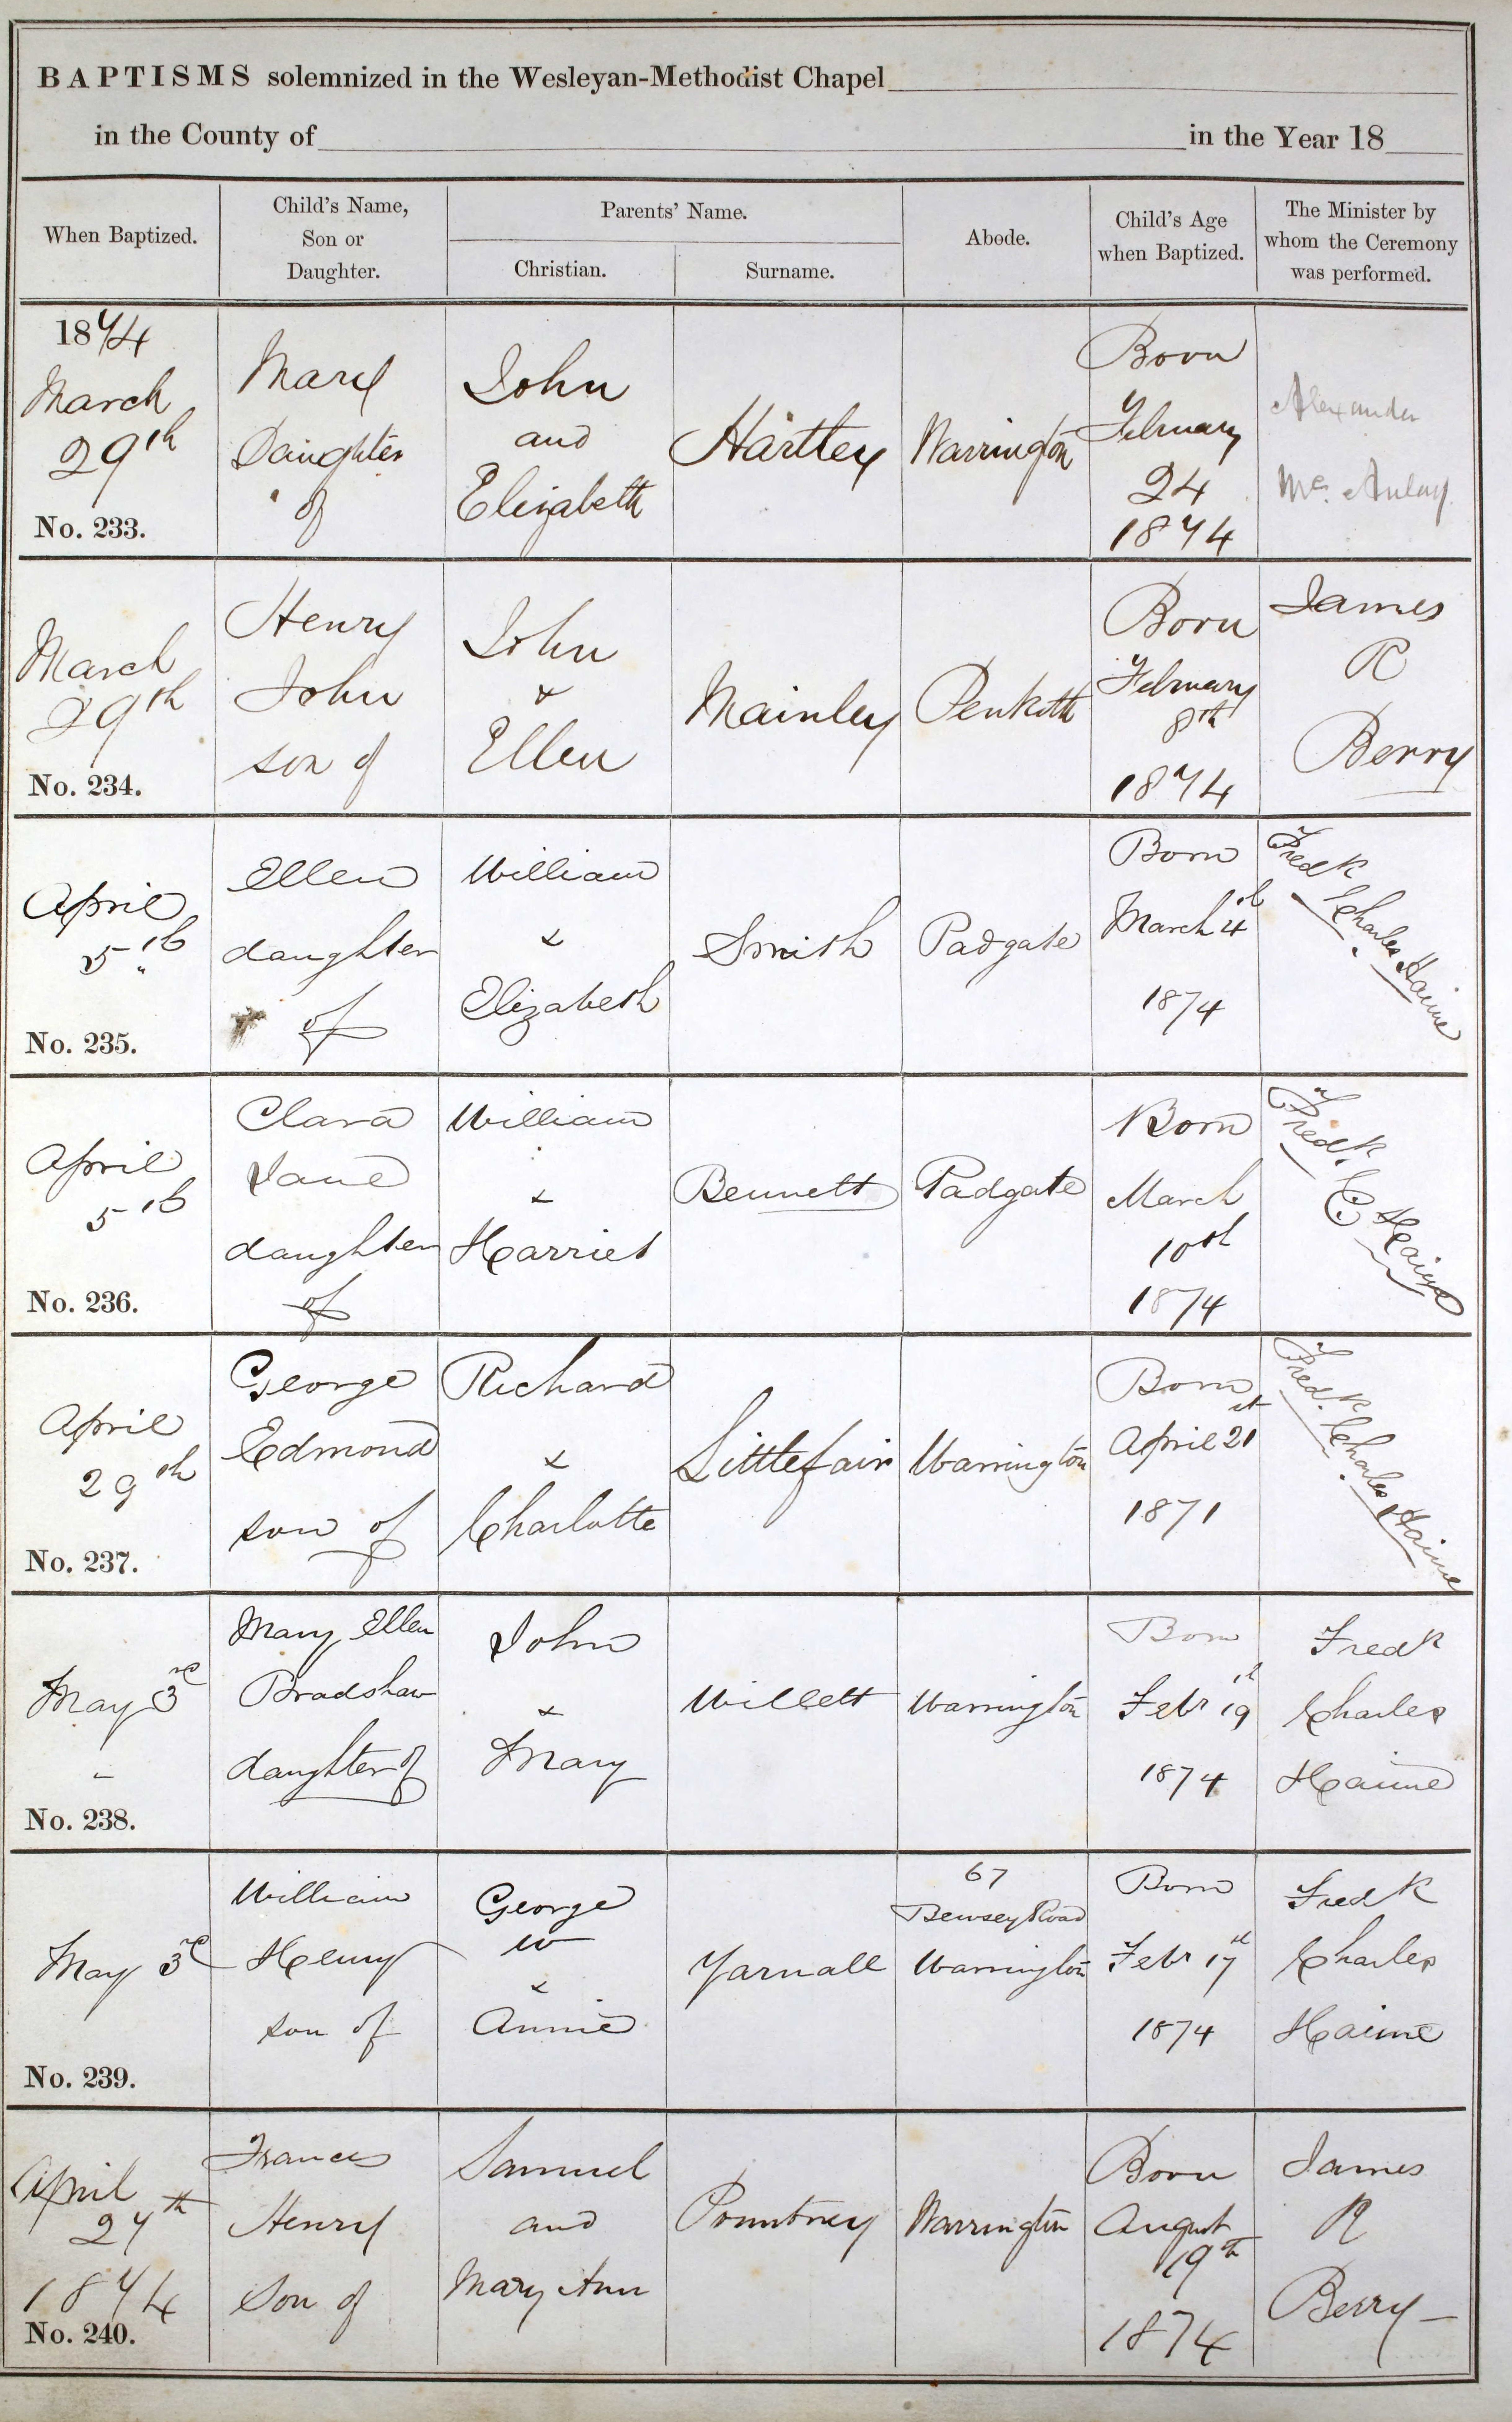 BAPTISMS solemnized in the Wesleyan-Methodist Chapel
in the County of in the Year 18
When Baptized.
Child's Name,
Son or
Daughter.
Parents' Name.
Christian.
Surname.
Abode.
Child's Age
when Baptized.
The Minister by
whom the Ceremony
was performed.
1874
March
29th
No. 233.
Mary
Daughter
of
John
and
Elizabeth
Hartley
Warrington
Born
February
24
1874
Alexander
Mc. Aulay
March
29th
No. 234.
Henry
John
son of
John
&
Ellen
Mainley
Penketh
Born
February
8th
1874
James
R
Berry
April
5th
No. 235.
Ellen
daughter
of
William
&
Elizabeth
Smith
Padgate
Born
March 4th
1874
Fredk
Charles Haime
April
5th
No. 236.
Clara
Jane
daughter
of
William
&
Harriet
Bennett
Padgate
Born
March
10th
1874
Fredk.
C Haime
April
29th
No. 237.
George
Edmond
son of
Richard
&
Charlotte
Littlefair
Warrington
Born
April 21st
1871
Fredk.
Charles Haime
May 3rd
No. 238.
Mary Ellen
Bradshaw
daughter of
John
&
Mary
Willett
Warrington
Born
Febr 19th
1874
Fredk
Charles
Haime
May 3rd
No. 239.
William
Henry
son of
George
W
&
Annie
Yarnall
67
Bewsey Road
Warrington
Born
Febr 17th
1874
Fredk
Charles
Haime
April
27th
1874
No. 240.
Francis
Henry
Son of
Samuel
and
Mary Ann
Pountney
Warrington
Born
August
19th
1874
James
R
Berry